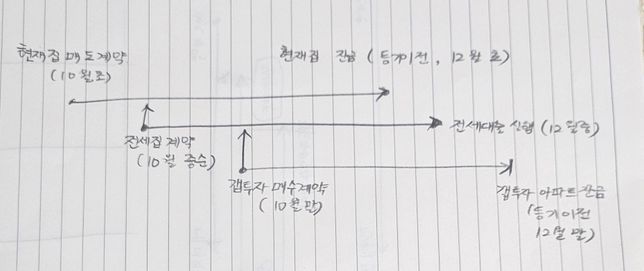 현재집 매도계약
(10월초)
현재집 잔금 (등기이전, 12월 초)
전세집 계약
(10월 중순)
전세대출 실행 (12월중)
갭투자 매수계약
(10월말)
갭투자 아파트 잔금
(등기이전
12월 말)